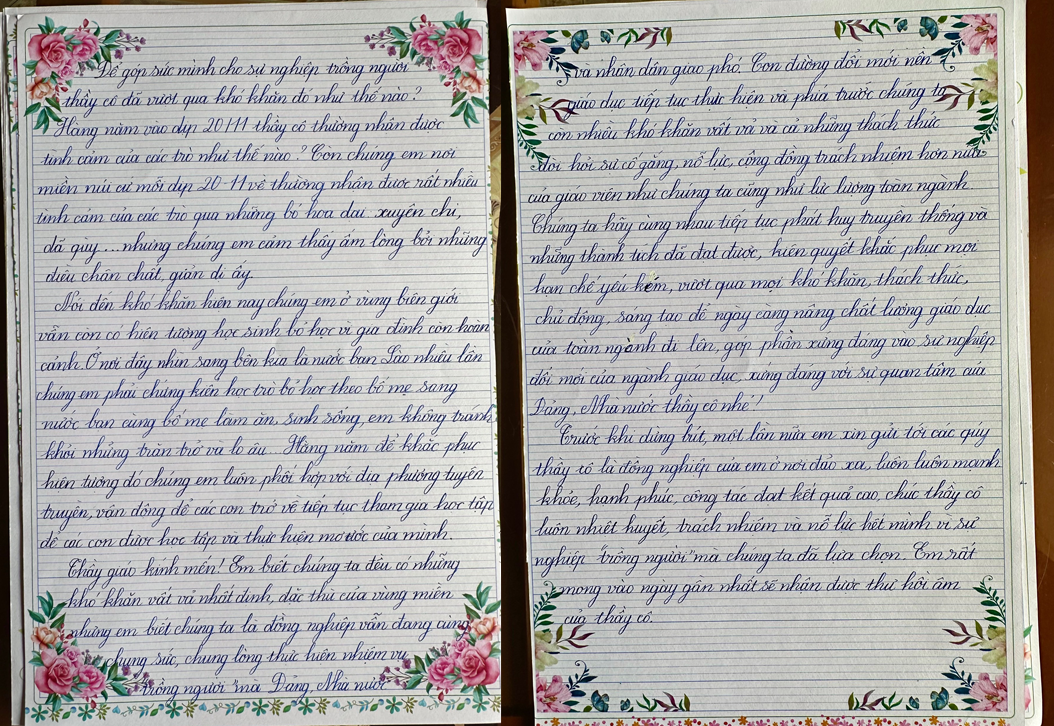 Để góp sức mình cho sự nghiệp trồng người
thầy cô đã vượt qua khó khăn đó như thế nào?
Hằng năm vào dịp 20/11 thầy cô thường nhận được
tình cảm của các trò như thế nào? Còn chúng em nơi
miền núi cứ mỗi dịp 20-11 về thường nhận được rất nhiều
tình cảm của các trò qua những bó hoa dại xuyên chi,
dã quỳ... nhưng chúng em cảm thấy ấm lòng bởi những
điều chân chất, giản dị ấy.
Nói đến khó khăn hiện nay chúng em ở vùng biên giới
vẫn còn có hiện tượng học sinh bỏ học vì gia đình còn hoàn
cảnh. Ở nơi đây nhìn sang bên kia là nước bạn Lào nhiều lần
chúng em phải chứng kiến học trò bỏ học theo bố mẹ sang
nước bạn cùng bố mẹ làm ăn, sinh sống, em không tránh
khỏi những trăn trở và lo âu... Hằng năm để khắc phục
hiện tượng đó chúng em luôn phối hợp với địa phương tuyên
truyền, vận động để các con trở về tiếp tục tham gia học tập
để các con được học tập và thực hiện mơ ước của mình.
Thầy giáo kính mến! Em biết chúng ta đều có những
khó khăn vất vả nhất định, đặc thù của vùng miền
nhưng em biết chúng ta là đồng nghiệp vẫn đang cùng
chung sức, chung lòng thực hiện nhiệm vụ
"trồng người" mà Đảng, Nhà nước
và nhân dân giao phó. Con đường đổi mới nền
giáo dục tiếp tục thực hiện và phía trước chúng ta
còn nhiều khó khăn vất vả và cả những thách thức
đòi hỏi sự cố gắng, nỗ lực, cộng đồng trách nhiệm hơn nữa
của giáo viên như chúng ta cũng như lực lượng toàn ngành.
Chúng ta hãy cùng nhau tiếp tục phát huy truyền thống và
những thành tích đã đạt được, kiên quyết khắc phục mọi
hạn chế yếu kém, vượt qua mọi khó khăn, thách thức,
chủ động, sáng tạo để ngày càng nâng chất lượng giáo dục
của toàn ngành đi lên, góp phần xứng đáng vào sự nghiệp
đổi mới của ngành giáo dục, xứng đáng với sự quan tâm của
Đảng, Nhà nước thầy cô nhé!
Trước khi dừng bút, một lần nữa em xin gửi tới các quý
thầy cô là đồng nghiệp của em ở nơi đảo xa, luôn luôn mạnh
khỏe, hạnh phúc, công tác đạt kết quả cao, chúc thầy cô
luôn nhiệt huyết, trách nhiệm và nỗ lực hết mình vì sự
nghiệp "trồng người" mà chúng ta đã lựa chọn. Em rất
mong vào ngày gần nhất sẽ nhận được thư hồi âm
của thầy cô.